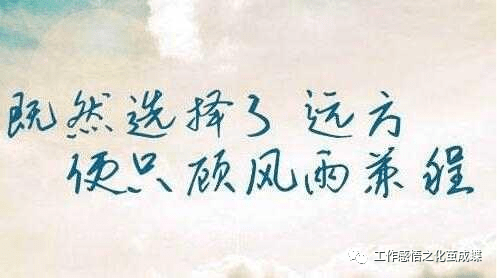 既然选择了 远方
便只顾风雨兼程
工作感悟之化茧成蝶